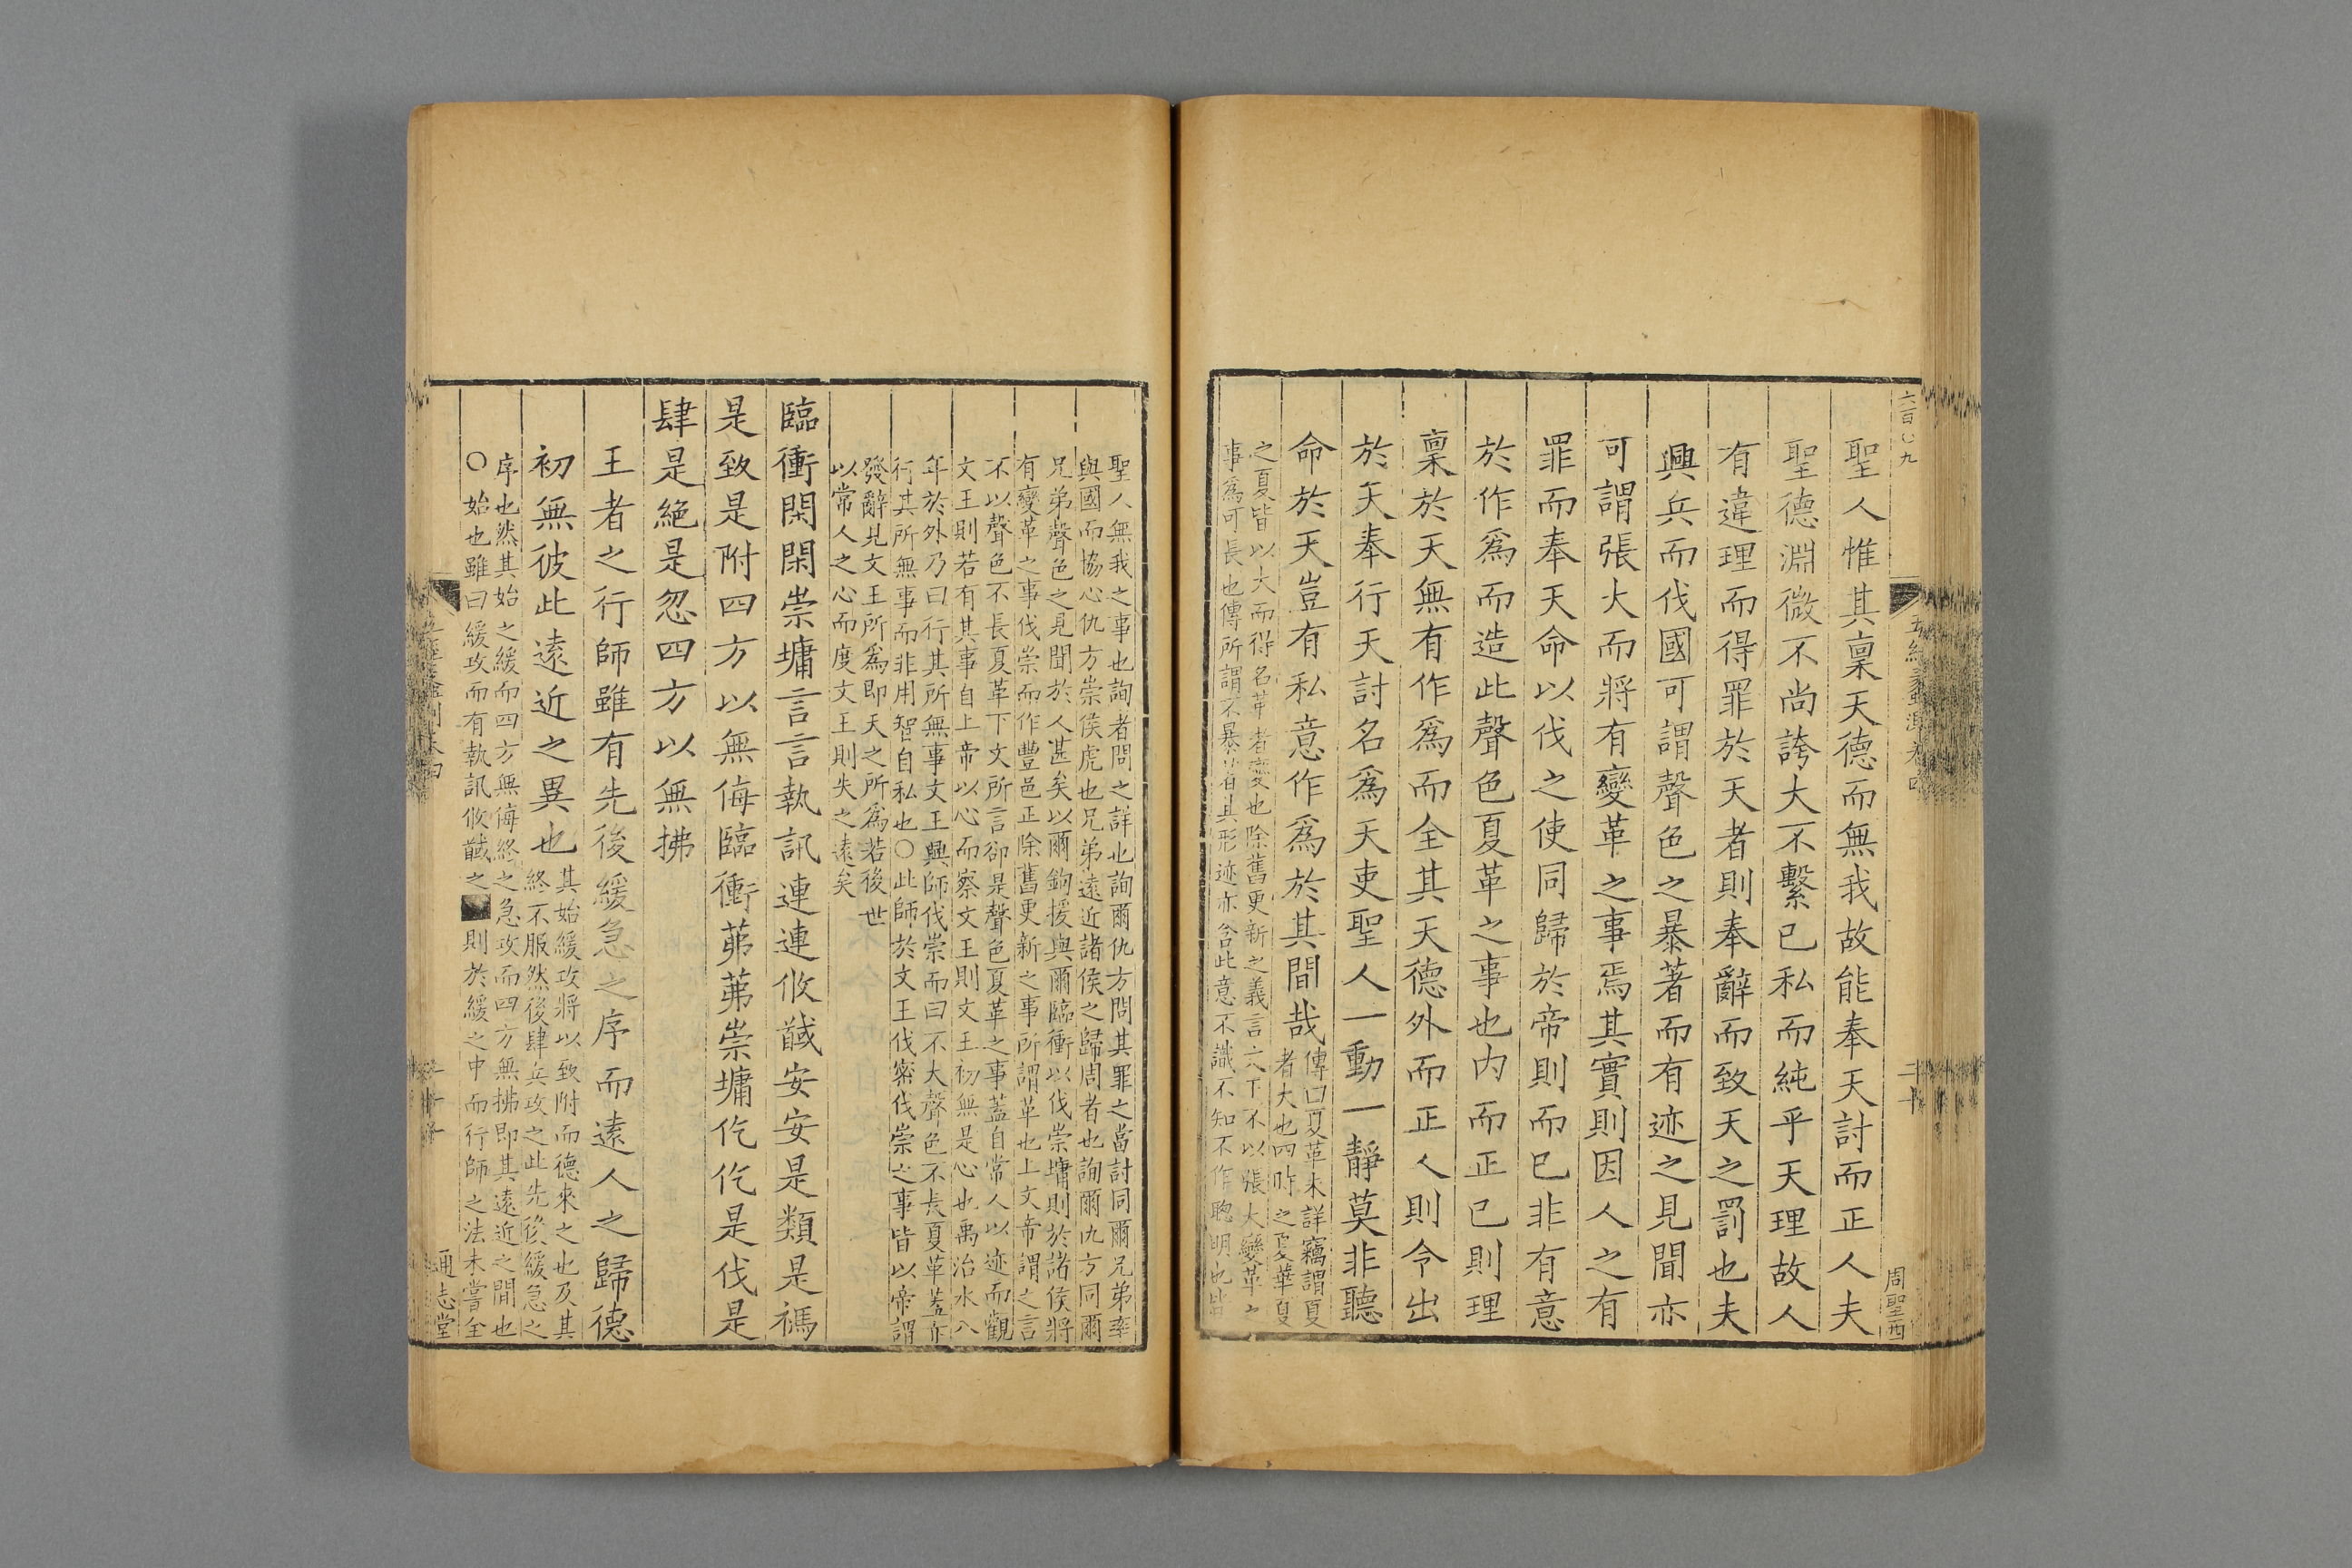 六百〇九
五經蠡測卷四
二十
周聖西
聖人惟其稟天德而無我故能奉天討而正人夫
聖德淵微不尚誇大不繫已私而純乎天理故人
有違理而得罪於天者則奉辭而致天之罰也夫
興兵而伐國可謂聲色之暴著而有迹之見聞亦
可謂張大而將有變革之事焉其實則因人之有
罪而奉天命以伐之使同歸於帝則而已非有意
於作爲而造此聲色夏革之事也内而正已則理
稟於天無有作爲而全其天德外而正人則令出
於天奉行天討名爲天吏聖人一動一靜莫非聽
命於天豈有私意作爲於其間哉
傳曰夏革未詳竊謂夏
者大也四時之夏華夏
之夏皆以大而得名革者變也除舊更新之義言文王不以張大變革之
事爲可長也傳所謂不暴著其形迹亦含此意不識不知不作聰明也皆
聖人無我之事也詢者問之詳也詢爾仇方問其罪之當討同爾兄弟率
與國而協心仇方崇侯虎也兄弟遠近諸侯之歸周者也詢爾仇方同爾
兄弟聲色之見聞於人甚矣以爾鉤援與爾臨衝以伐崇墉則於諸侯將
有變革之事伐崇而作豐邑正除舊更新之事所謂革也上文帝謂之言
不以聲色不長夏革下文所言卻是聲色夏革之事蓋自常人以迹而觀
文王則若有其事自上帝以心而察文王則文王初無是心也禹治水八
年於外乃曰行其所無事文王興師伐崇而曰不大聲色不長夏革蓋亦
行其所無事而非用智自私也〇此師於文王伐密伐崇之事皆以帝謂
發辭見文王所爲即天之所爲若後世
以常人之心而度文王則失之遠矣
臨衝閑閑崇墉言言執訊連連攸馘安安是類是禡
是致是附四方以無侮臨衝茀茀崇墉仡仡是伐是
肆是絕是忽四方以無拂
王者之行師雖有先後緩急之序而遠人之歸德
初無彼此遠近之異也
其始緩攻將以致附而德來之也及其
終不服然後肆兵攻之此先後緩急之
序也然其始之緩而四方無侮終之急攻而四方無拂即其遠近之間也
〇始也雖曰緩攻而有執訊攸馘之則於緩之中而行師之法未嘗全
通志堂